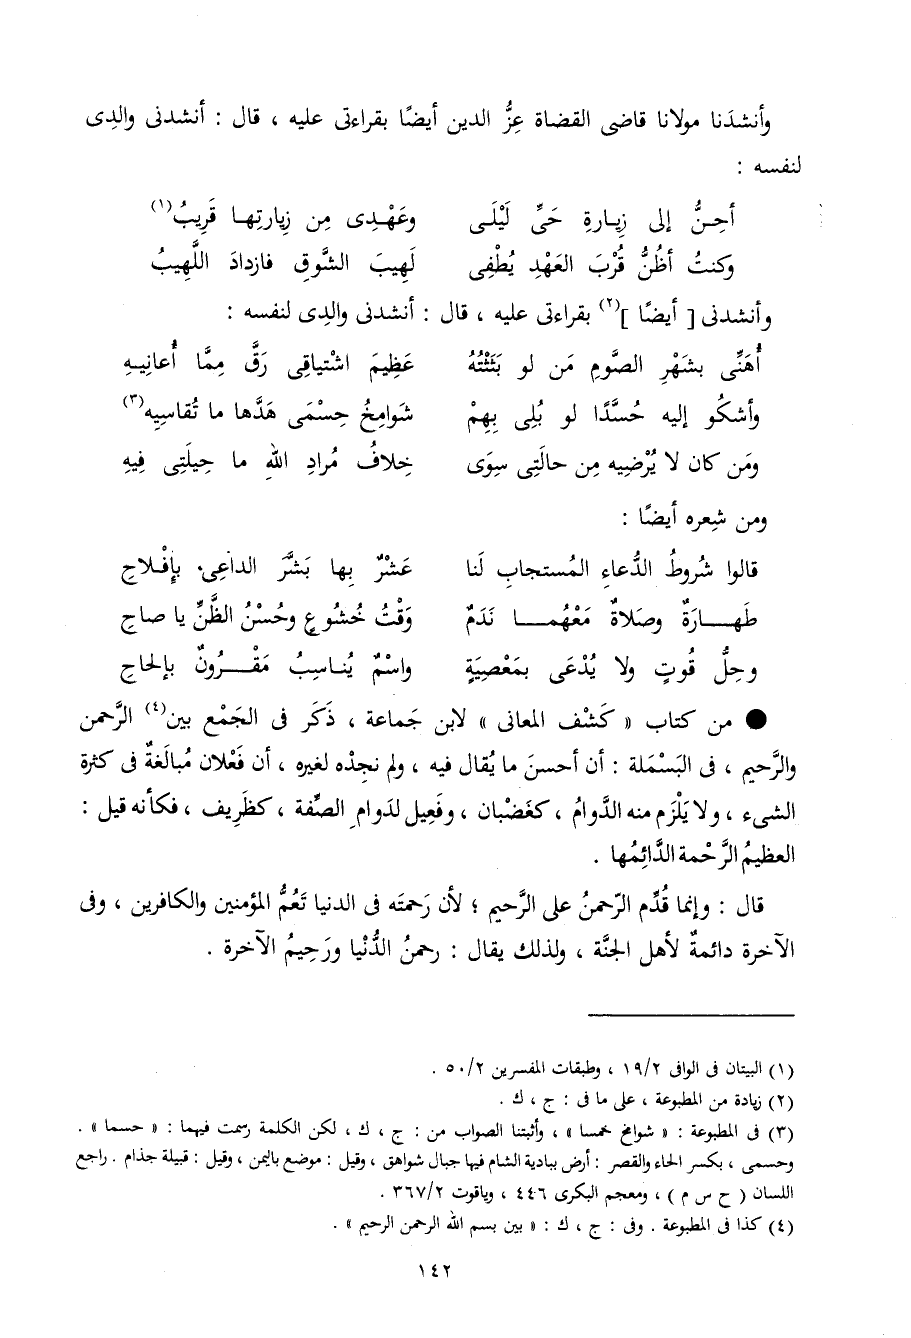 وأنشدَنا مولانا قاضى القضاة عِزُّ الدين أيضًا بقراءتى عليه ، قال : أنشدنى والِدِى
لنفسه :
أحِنُّ إلى زِيارةِ حَىِّ لَيْلَى وعَهْدِى مِن زِيارتِها قَرِيبُ(١)
وكنتُ أظُنُّ قُرْبَ العَهْدِ يُطْفِى لَهِيبَ الشَّوقِ فازدادَ اللَّهِيبُ
وأنشدنى [ أيضًا ](٢) بقراءتى عليه ، قال : أنشدنى والدِى لنفسه :
أُهَنِّى بشَهْرِ الصَّومِ مَن لو بَثَثْتُهُ عَظِيمَ اشْتياقِى رَقَّ مِمَّا أُعانِيهِ
وأشكُو إليه حُسَّدًا لو بُلِى بِهِمْ شَوامِخُ حِسْمَى هَدَّها ما تُقاسِيِه(٣)
ومَن كان لا يُرْضِيه مِن حالَتِى سِوَى خِلافُ مُرادِ اللهِ ما حِيلَتِى فِيهِ
ومن شِعره أيضًا :
قالوا شُروطُ الدُّعاءِ المُستجابِ لَنا عَشْرٌ بِها بَشِّرِ الداعِى بإفْلاحِ
طَهارَةٌ وصَلاةٌ مَعْهُما نَدَمٌ وَقْتُ خُشُوعٍ وحُسْنُ الظَّنِّ يا صاحِ
وحِلُّ قُوتٍ ولا يُدْعَى بمَعْصِيَةٍ واسْمٌ يُناسِبُ مَقْرُونٌ بإلحاحِ
● من كتاب « كَشْف المعانى » لابن جَماعة ، ذَكَر فى الجَمْع بين(٤) الرَّحمن
والرَّحيم ، فى البَسْملة : أن أحسنَ ما يُقال فيه ، ولم نجِدْه لغيره ، أن فَعْلان مُبالَغةٌ فى كثرة
الشىء ، ولا يَلْزَم منه الدَّوامُ ، كغَضْبان ، وفَعِيل لدَوامِ الصِّفة ، كظَرِيف ، فكأنه قيل :
العظيمُ الرَّحْمة الدَّائِمُها .
قال : وإنما قُدِّم الرّحمنُ على الرَّحيم ؛ لأن رَحمتَه فى الدنيا تَعُمُّ المؤمنين والكافرين ، وفى
الآخرة دائمةٌ لأهل الجنَّة ، ولذلك يقال : رحمنُ الدُّنْيا ورَحِيمُ الآخرة .
(١) البيتان فى الوافى ١٩/٢ ، وطبقات المفسرين ٥٠/٢ .
(٢) زيادة من المطبوعة ، على ما فى : ج ، ك .
(٣) فى المطبوعة : « شوامخ خمسا » ، وأثبتنا الصواب من : ج ، ك ، لكن الكلمة رسمت فيهما : « حسما » .
وحسمى ، بكسر الحاء والقصر : أرض ببادية الشام فيها جبال شواهق ، وقيل : موضع باليمن ، وقيل : قبيلة جذام . راجع
اللسان ( ح س م ) ، ومعجم البكرى ٤٤٦ ، وياقوت ٣٦٧/٢ .
(٤) كذا فى المطبوعة . وفى : ج ، ك : « بين بسم الله الرحمن الرحيم » .
١٤٢